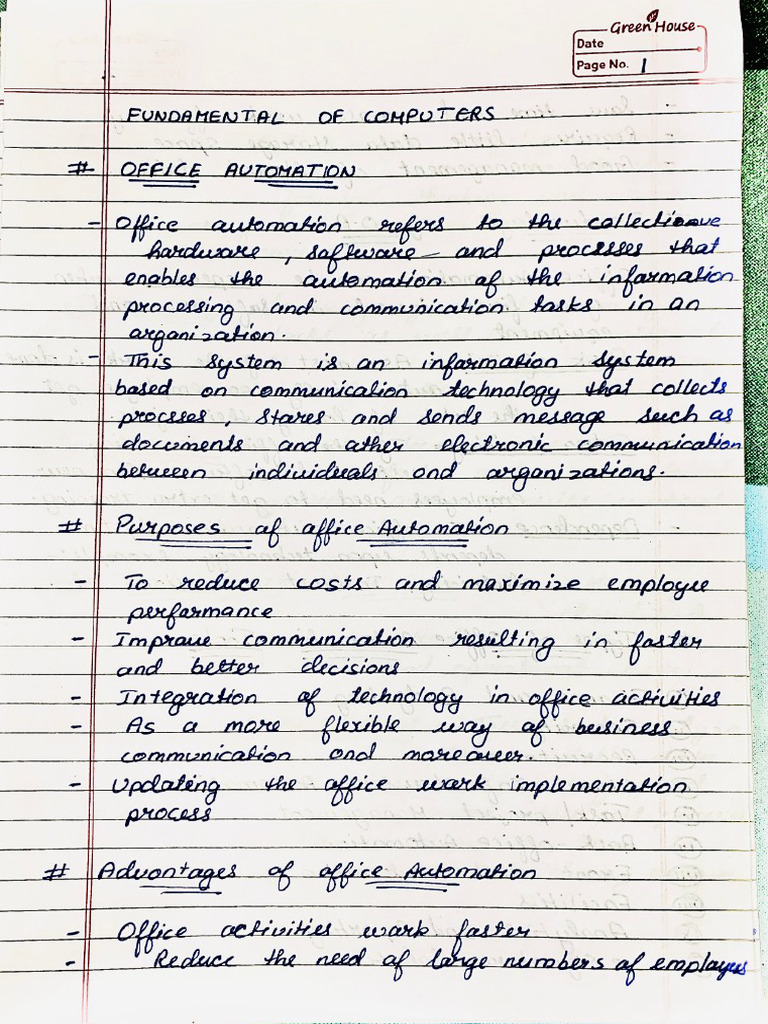 Green House
Date
Page No. 1
FUNDAMENTAL OF COMPUTERS
# OFFICE AUTOMATION
- Office automation refers to the
hardware, software and processes that
enables the automation of the information
processing and communication tasks in an
organization.
- This system is an information system
based on communication technology that collects
processes, stores and sends message such as
documents and other electronic communication
between individuals and organizations.
# Purposes of office Automation
- To reduce costs and maximize employee
performance
- Improve communication resulting in faster
and better decisions
- Integration of technology in office activities
- As a more flexible way of business
communication and moreover.
- Updating the office work implementation
process
# Advantages of office Automation
- Office activities work faster
- Reduce the need of large numbers of employees